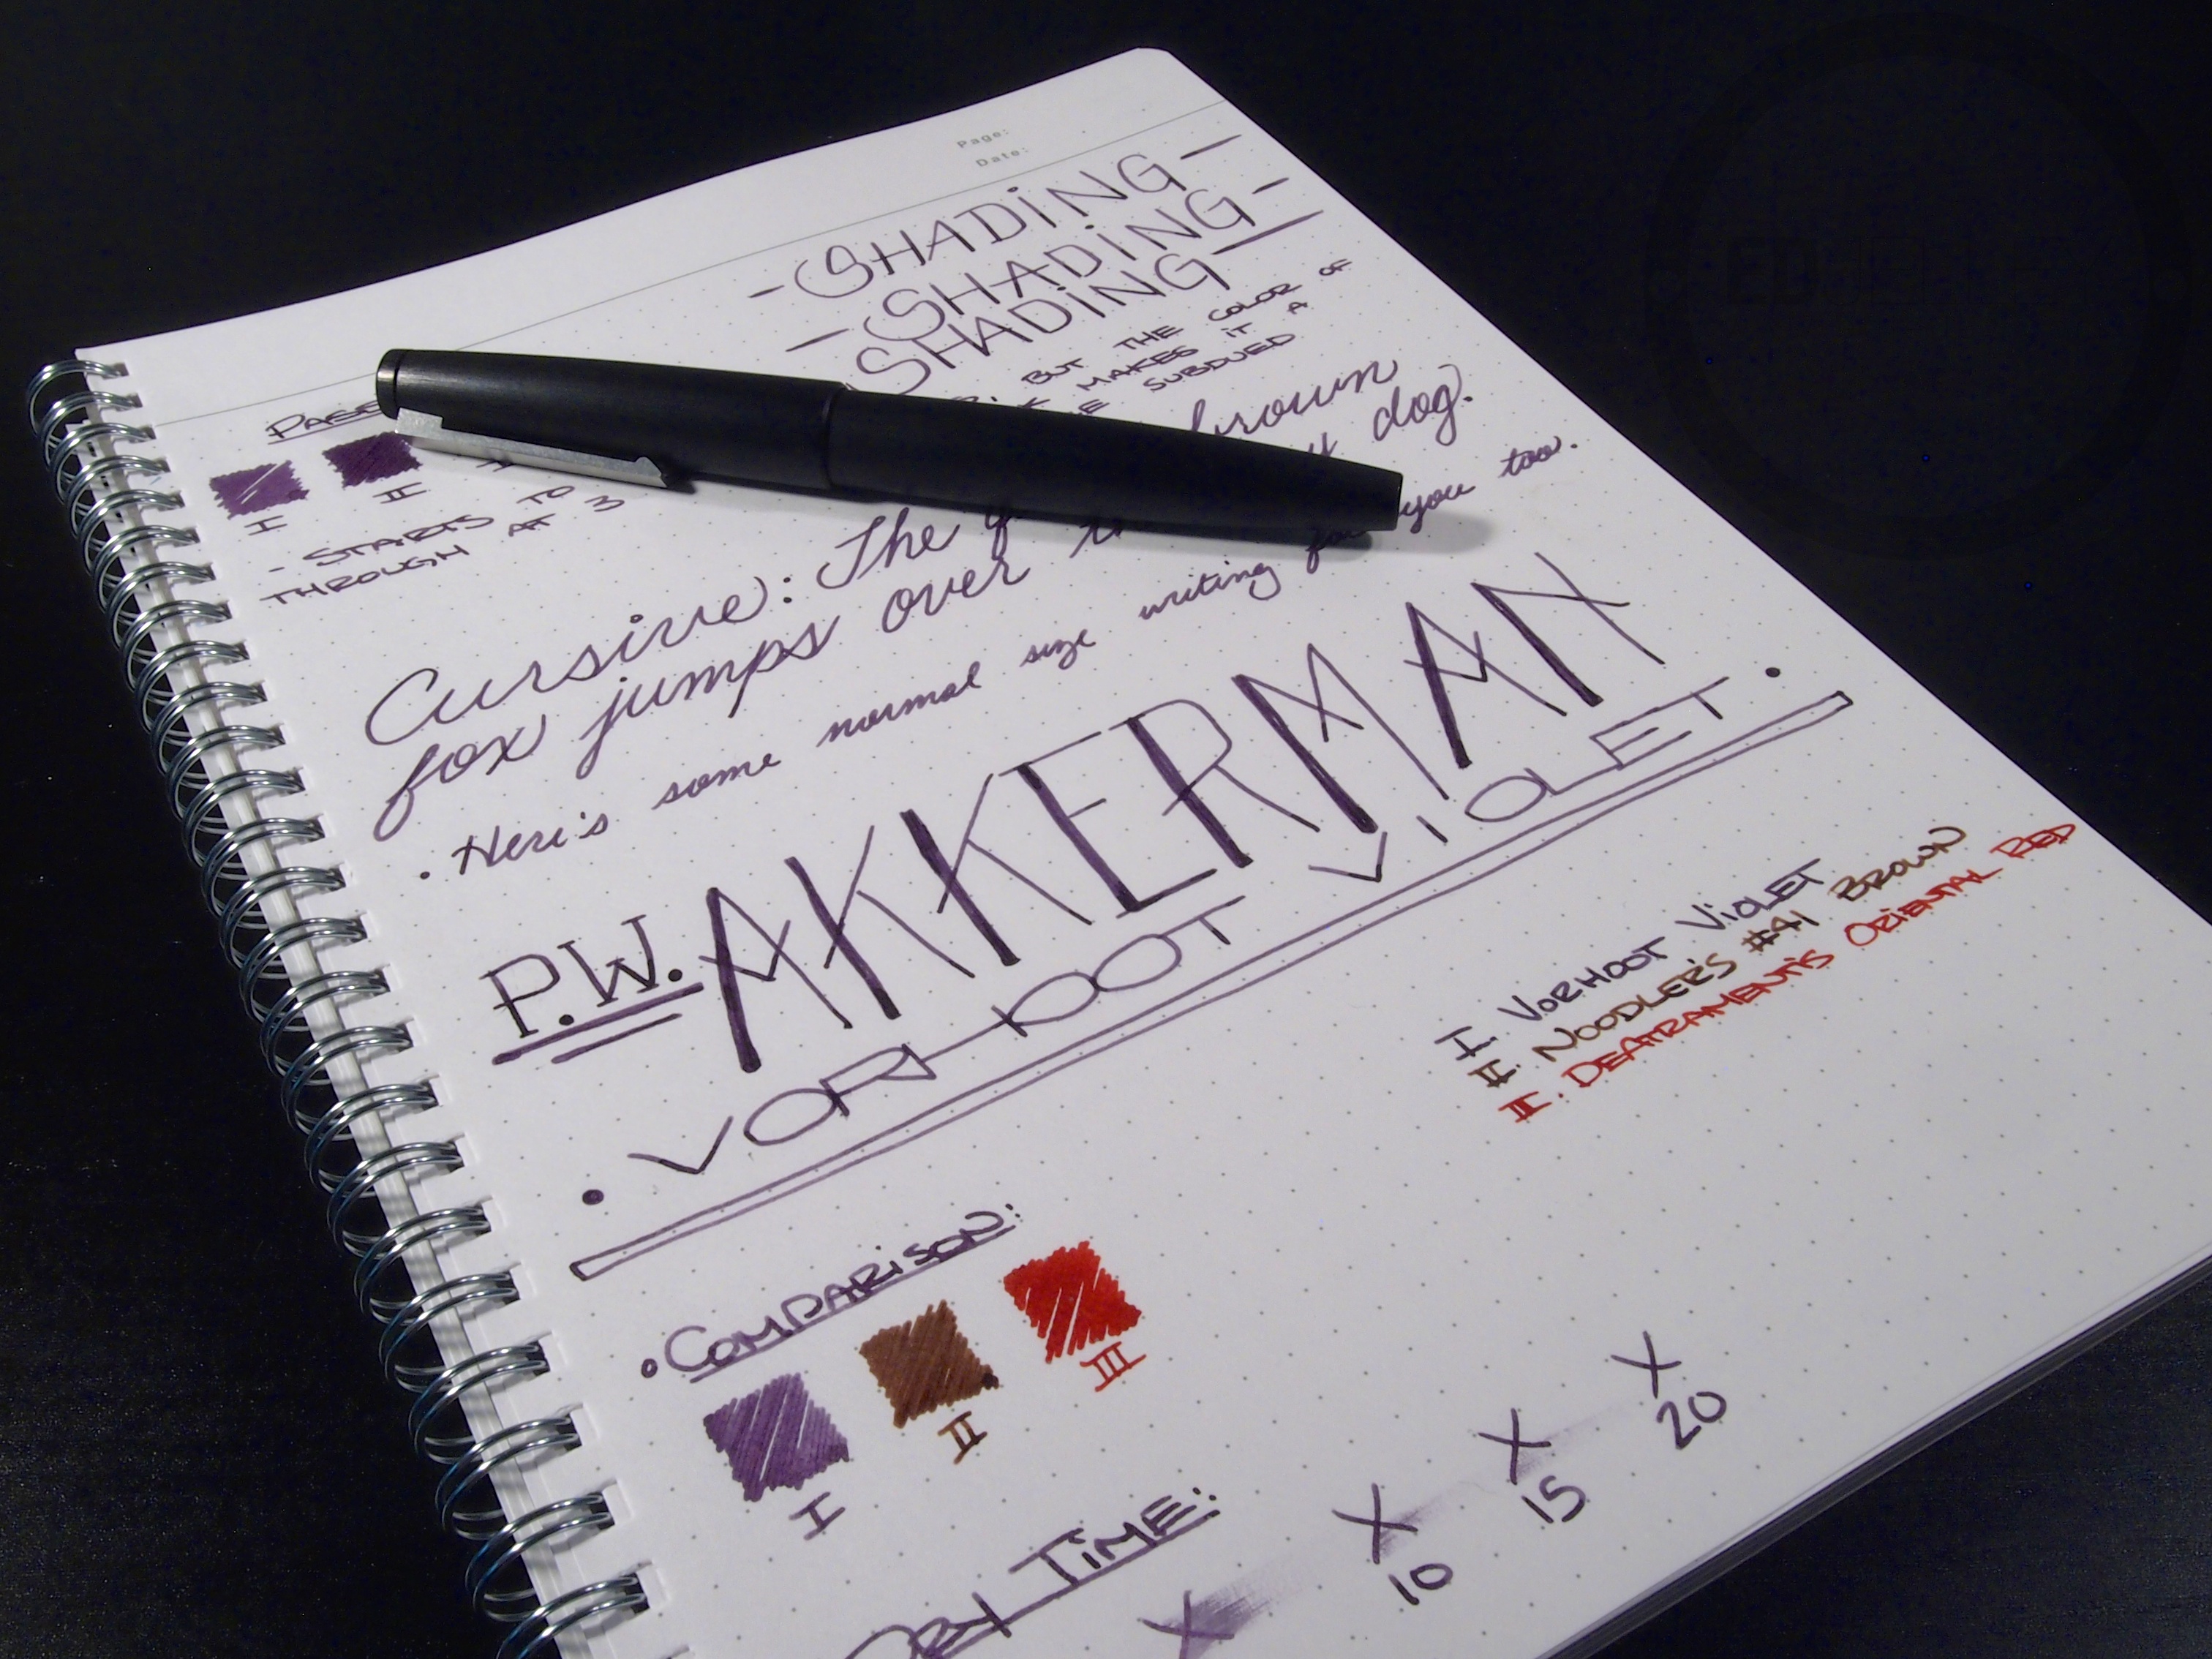 Page:
Date:
-SHADING-
-SHADING-
-SHADING-
BUT THE COLOR OF
MAKES IT A
SUBDUED
I
II
- STARTS TO
THROUGH AT 3
Cursive: The brown
fox jumps over dog.
. Here's some normal size writing for you too.
P.W. AKKERMAN
. VORHOOT VIOLET .
I. VORHOOT VIOLET
II. NOODLER'S #41 BROWN
III. DEATRAMENTIS ORIENTAL RED
COMPARISON:
I
II
III
DRY TIME:
X
X
X
X
10
15
20